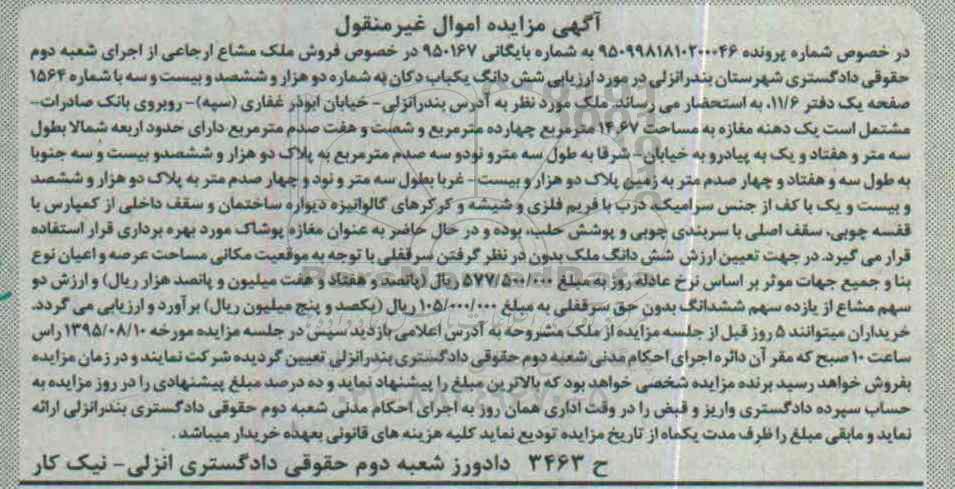 آگهی مزایده اموال غیرمنقول
در خصوص شماره پرونده ۹۵۰۹۹۸۱۸۱۰۲۰۰۰۴۶ به شماره بایگانی ۹۵۰۱۶۷ در خصوص فروش ملک مشاع ارجاعی از اجرای شعبه دوم
حقوقی دادگستری شهرستان بندرانزلی در مورد ارزیابی شش دانگ یکباب دکان به شماره دو هزار و ششصد و بیست و سه با شماره ۱۵۶۴
صفحه یک دفتر ۱۱/۶، به استحضار می رساند: ملک مورد نظر به آدرس بندرانزلی- خیابان ابوذر غفاری (سپه)- روبروی بانک صادرات-
مشتمل است یک دهنه مغازه به مساحت ۱۴٫۶۷ مترمربع چهارده مترمربع و شصت و هفت صدم مترمربع دارای حدود اربعه شمالا بطول
سه متر و هفتاد و یک به پیادرو به خیابان- شرقا به طول سه مترو نودو سه صدم مترمربع به پلاک دو هزار و ششصدو بیست و سه جنوبا
به طول سه و هفتاد و چهار صدم متر به زمین پلاک دو هزار و بیست- غربا بطول سه متر و نود و چهار صدم متر به پلاک دو هزار و ششصد
و بیست و یک با کف از جنس سرامیک، درب با فریم فلزی و شیشه و کرکرهای گالوانیزه دیواره ساختمان و سقف داخلی از کمپارس با
قفسه چوبی، سقف اصلی با سربندی چوبی و پوشش حلب، بوده و در حال حاضر به عنوان مغازه پوشاک مورد بهره برداری قرار استفاده
قرار می گیرد. در جهت تعیین ارزش شش دانگ ملک بدون در نظر گرفتن سرقفلی با توجه به موقعیت مکانی مساحت عرصه و اعیان نوع
بنا و جمیع جهات موثر بر اساس نرخ عادله روز به مبلغ ۵۷۷/۵۰۰/۰۰۰ ریال (پانصد و هفتاد و هفت میلیون و پانصد هزار ریال) و ارزش دو
سهم مشاع از یازده سهم ششدانگ بدون حق سرقفلی به مبلغ ۱۰۵/۰۰۰/۰۰۰ ریال (یکصد و پنج میلیون ریال) برآورد و ارزیابی می گردد.
خریداران میتوانند ۵ روز قبل از جلسه مزایده از ملک مشروحه به آدرس اعلامی بازدید سپس در جلسه مزایده مورخه ۱۳۹۵/۰۸/۱۰ راس
ساعت ۱۰ صبح که مقر آن دائره اجرای احکام مدنی شعبه دوم حقوقی دادگستری بندرانزلی تعیین گردیده شرکت نمایند و در زمان مزایده
بفروش خواهد رسید برنده مزایده شخصی خواهد بود که بالاترین مبلغ را پیشنهاد نماید و ده درصد مبلغ پیشنهادی را در روز مزایده به
حساب سپرده دادگستری واریز و قبض را در وقت اداری همان روز به اجرای احکام مدنی شعبه دوم حقوقی دادگستری بندرانزلی ارائه
نماید و مابقی مبلغ را ظرف مدت یکماه از تاریخ مزایده تودیع نماید کلیه هزینه های قانونی بعهده خریدار میباشد.
ح ۳۴۶۳ دادورز شعبه دوم حقوقی دادگستری انزلی- نیک کار